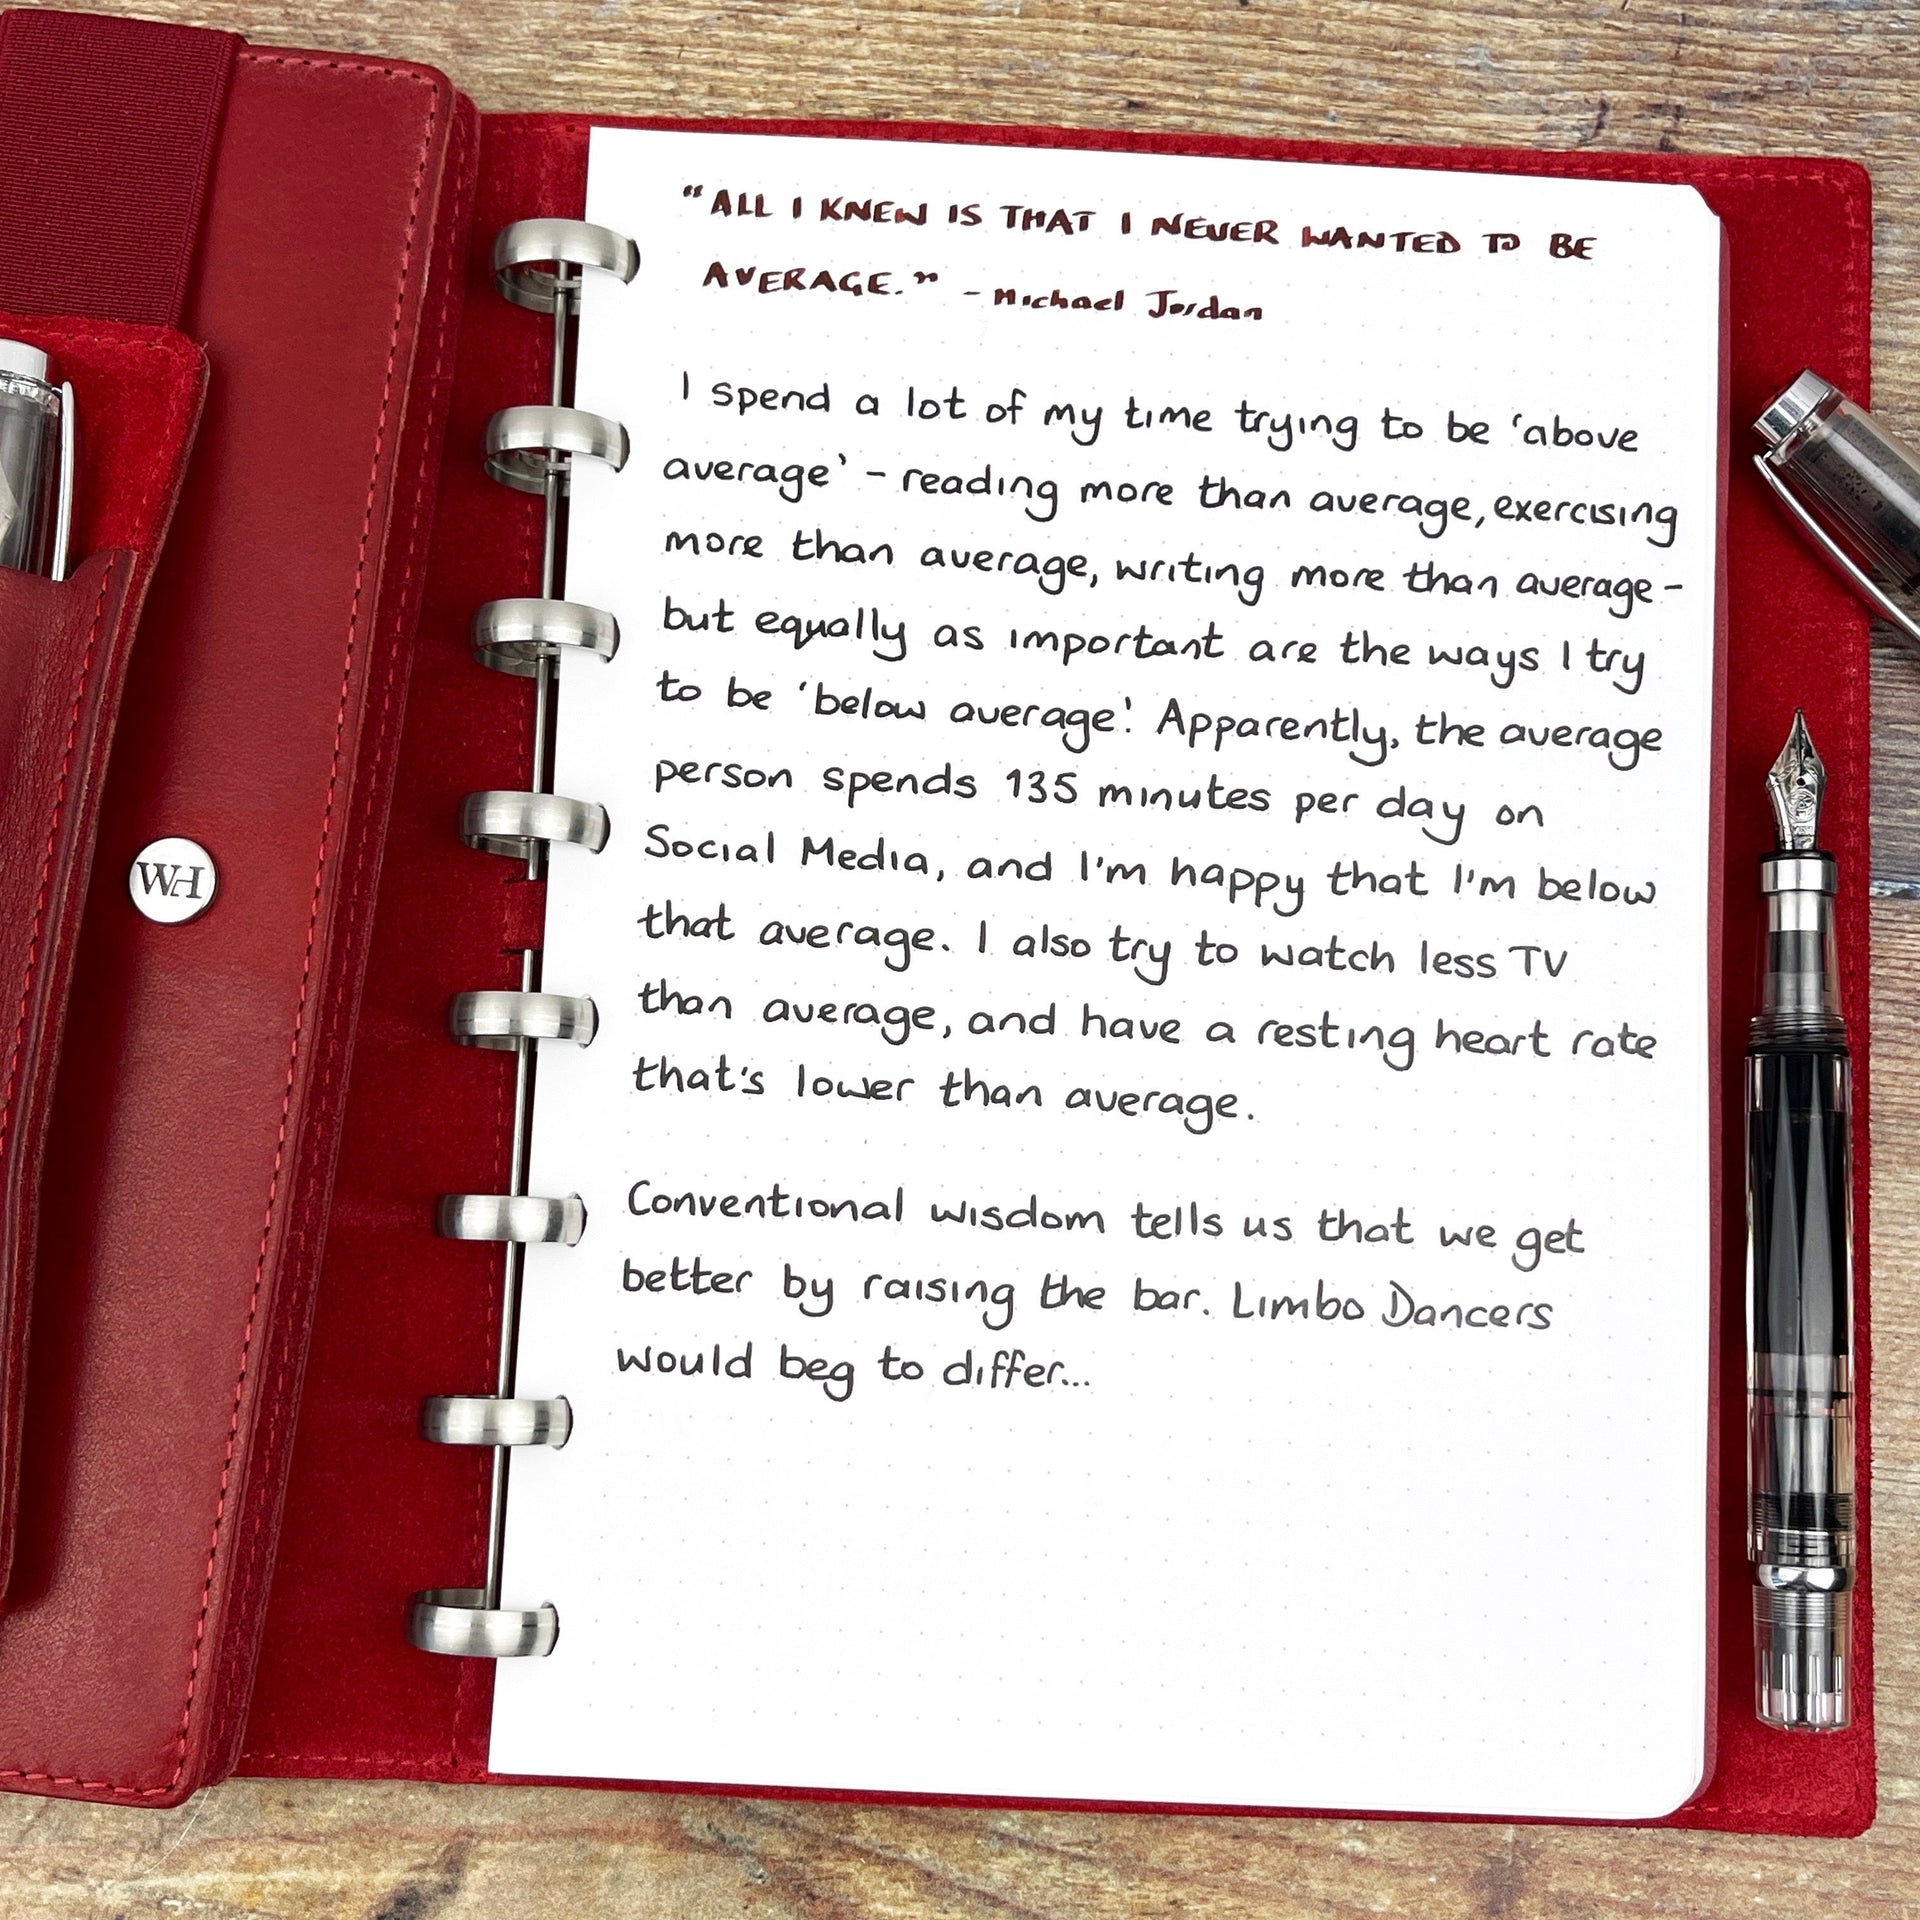 "ALL I KNEW IS THAT I NEVER WANTED TO BE
AVERAGE." - Michael Jordan
I spend a lot of my time trying to be 'above
average' - reading more than average, exercising
more than average, writing more than average -
but equally as important are the ways I try
to be 'below average'. Apparently, the average
person spends 135 minutes per day on
Social Media, and I'm happy that I'm below
that average. I also try to watch less TV
than average, and have a resting heart rate
that's lower than average.
Conventional wisdom tells us that we get
better by raising the bar. Limbo Dancers
would beg to differ...
WH